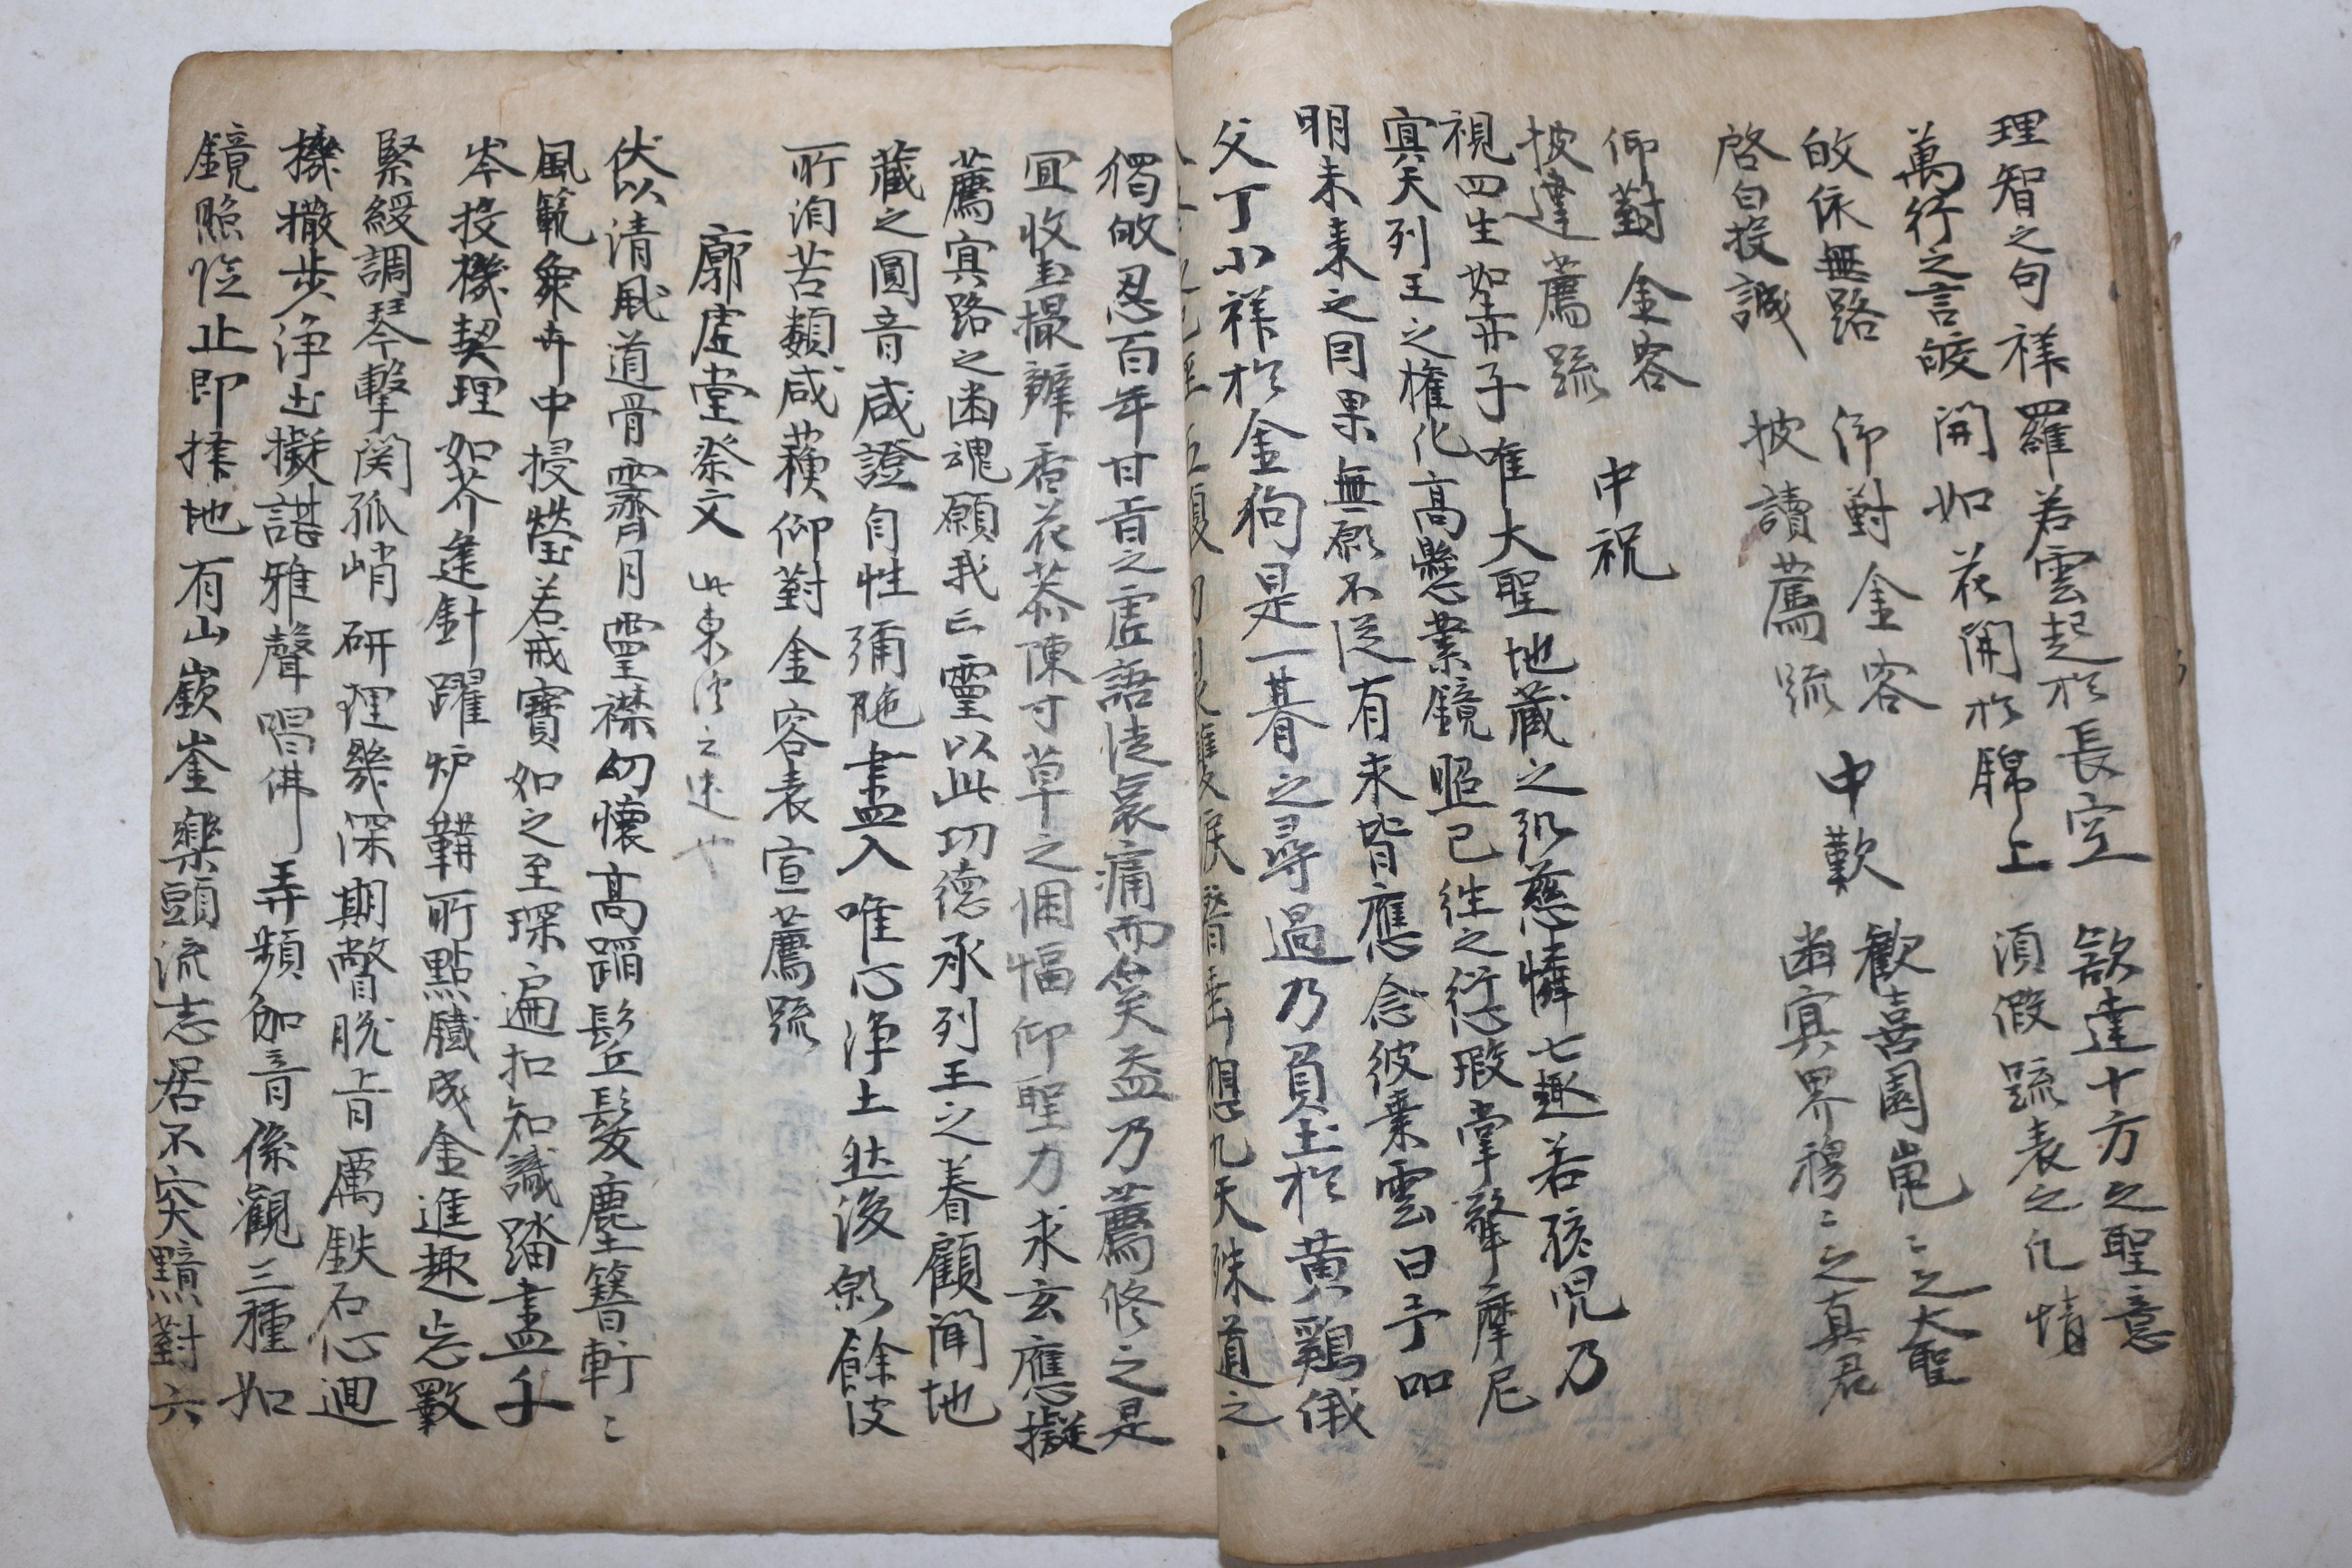 理智之句 祥羅若雲起於長空 欲達十方之聖意
萬行之言 皎開如花開於錦上 須假疏表之凡情
皈依無路 仰對金容 中歎 歡喜園嵬〻之大聖
啓白投誠 披讀薦疏 幽冥界穆〻之真君
仰對金容 中祝
披達薦疏
視四生如赤子 唯大聖地藏之弘慈憐七趣若孩児乃
冥天列王之權化高懸業鏡照已往之愆瑕掌擎摩尼
明未來之因果無願不從有求皆應念彼乗雲日予
父丁小祥於金狗是一朞之尋過乃負土於黃鷄俄
九天殊道之
獨皈忍百年甘旨之虛語徒哀痛而奚益乃薦修之是
宜收盡撮辦香花恭陳寸草之悃愊仰聖力求玄應擬
薦冥路之幽魂願我亡靈以此功德承列王之眷顧聞地
藏之圓音咸證自性彌陁盡入唯心淨土然後餘波
所洎苦類咸蘓仰對金容表宣薦疏
廓虛堂祭文 此東 之 也
伏以清風道骨霽月靈襟幼懷高蹈髟丘髮塵簪軒〻
風範象卉中授瑩若戒寶如之至琛遍扣知識踏盡千
岑投機契理如芥逢針躍炉鞴所點鐵成金進趣忘歝
緊綬調琴擊関孤峭研理幾深期瞥脫上肯厲鉄石心迴
機撒步淨土擬諶雅聲唱佛弄頻伽音係觀三種如
鏡照 止即 地有山嶔崟樂頭流志居不突黯對六